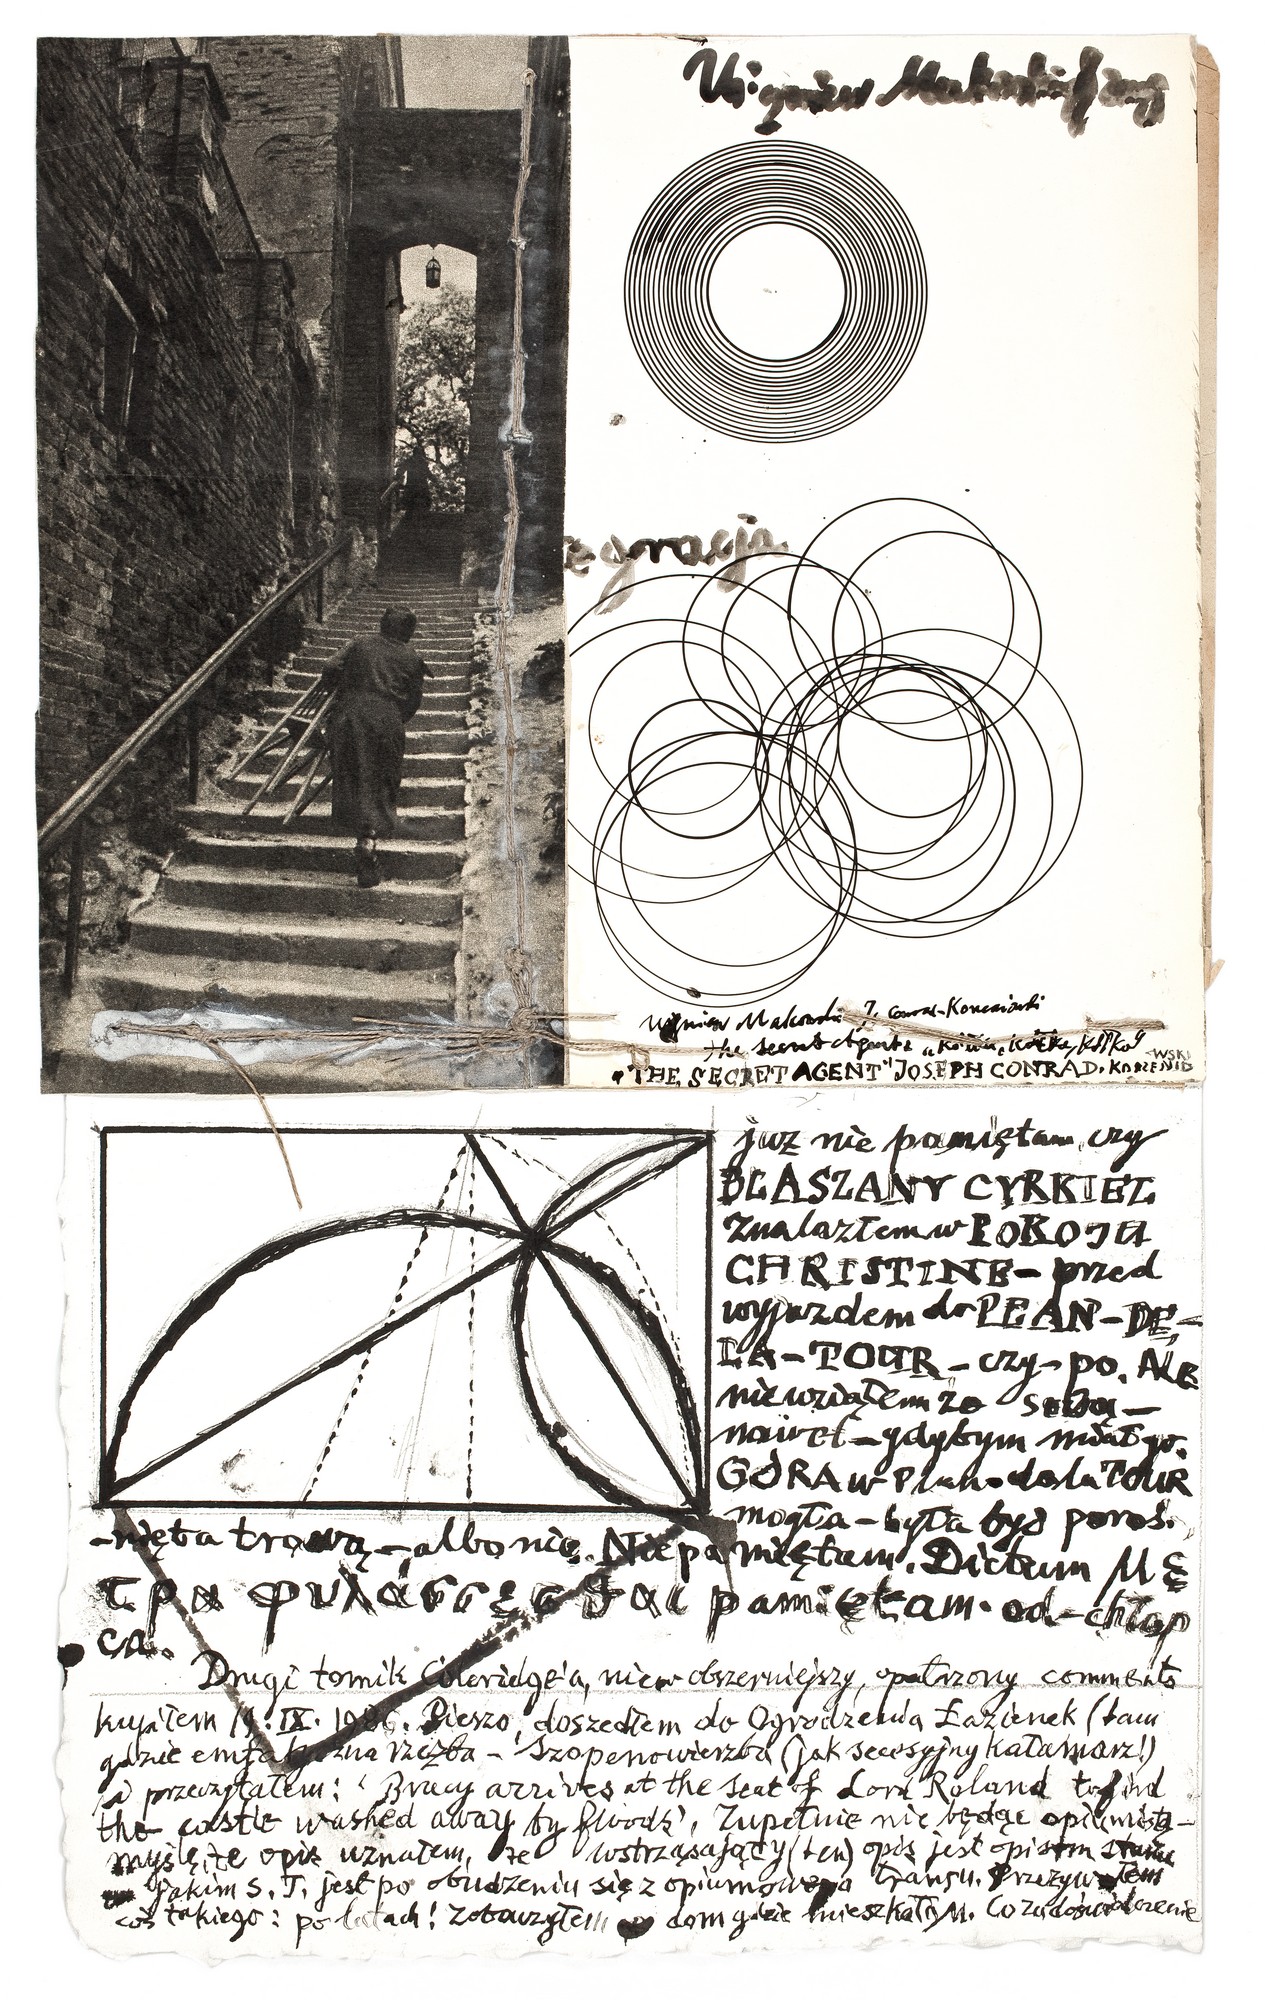 Zbigniew Makowski
egracja
Zbigniew Makowski J. Conrad-Korzeniowski
the secret Agent
"THE SECRET AGENT" JOSEPH CONRAD. KORZENIOWSKI
już nie pamiętam, czy
BLASZANY CYRKIEL
znalazłem w POKOJU
CHRISTINE – przed
wyjazdem do PLAN-DE-
LA-TOUR – czy – po. ALE
nie wziąłem ze sobą –
nawet – gdybym miał go.
GÓRA w Plan-de-la TOUR
mogła – była być poroś.
–nięta trawą – albo nie. Nie pamiętam. Dictum ΜΕ
ΤΡΑ φυλάσσεσθαι pamiętam. od-chłop
ca.
Drugi tomik Coleridge'a, nieco obszerniejszy, opatrzony comments
kupiłem 19. IX. 1986. Pieszo doszedłem do Ogrodzenia Łazienek (tam
gdzie emfatyczna rzeźba – Szopenowierzba (jak secesyjny kałamarz!)
i przeczytałem: ' Bracy arrives at the seat of Lord Roland to find
the castle washed away by floods'. Zupełnie nie będąc opiumistą –
myślę, że opis uznałem, że wstrząsający (ten) opis jest opisem stanu
w jakim S. T. jest po obudzeniu się z opiumowego transu. Przeżywałem
coś takiego: po latach! Zobaczyłem dom gdzie mieszkał M. Co za doświadczenie